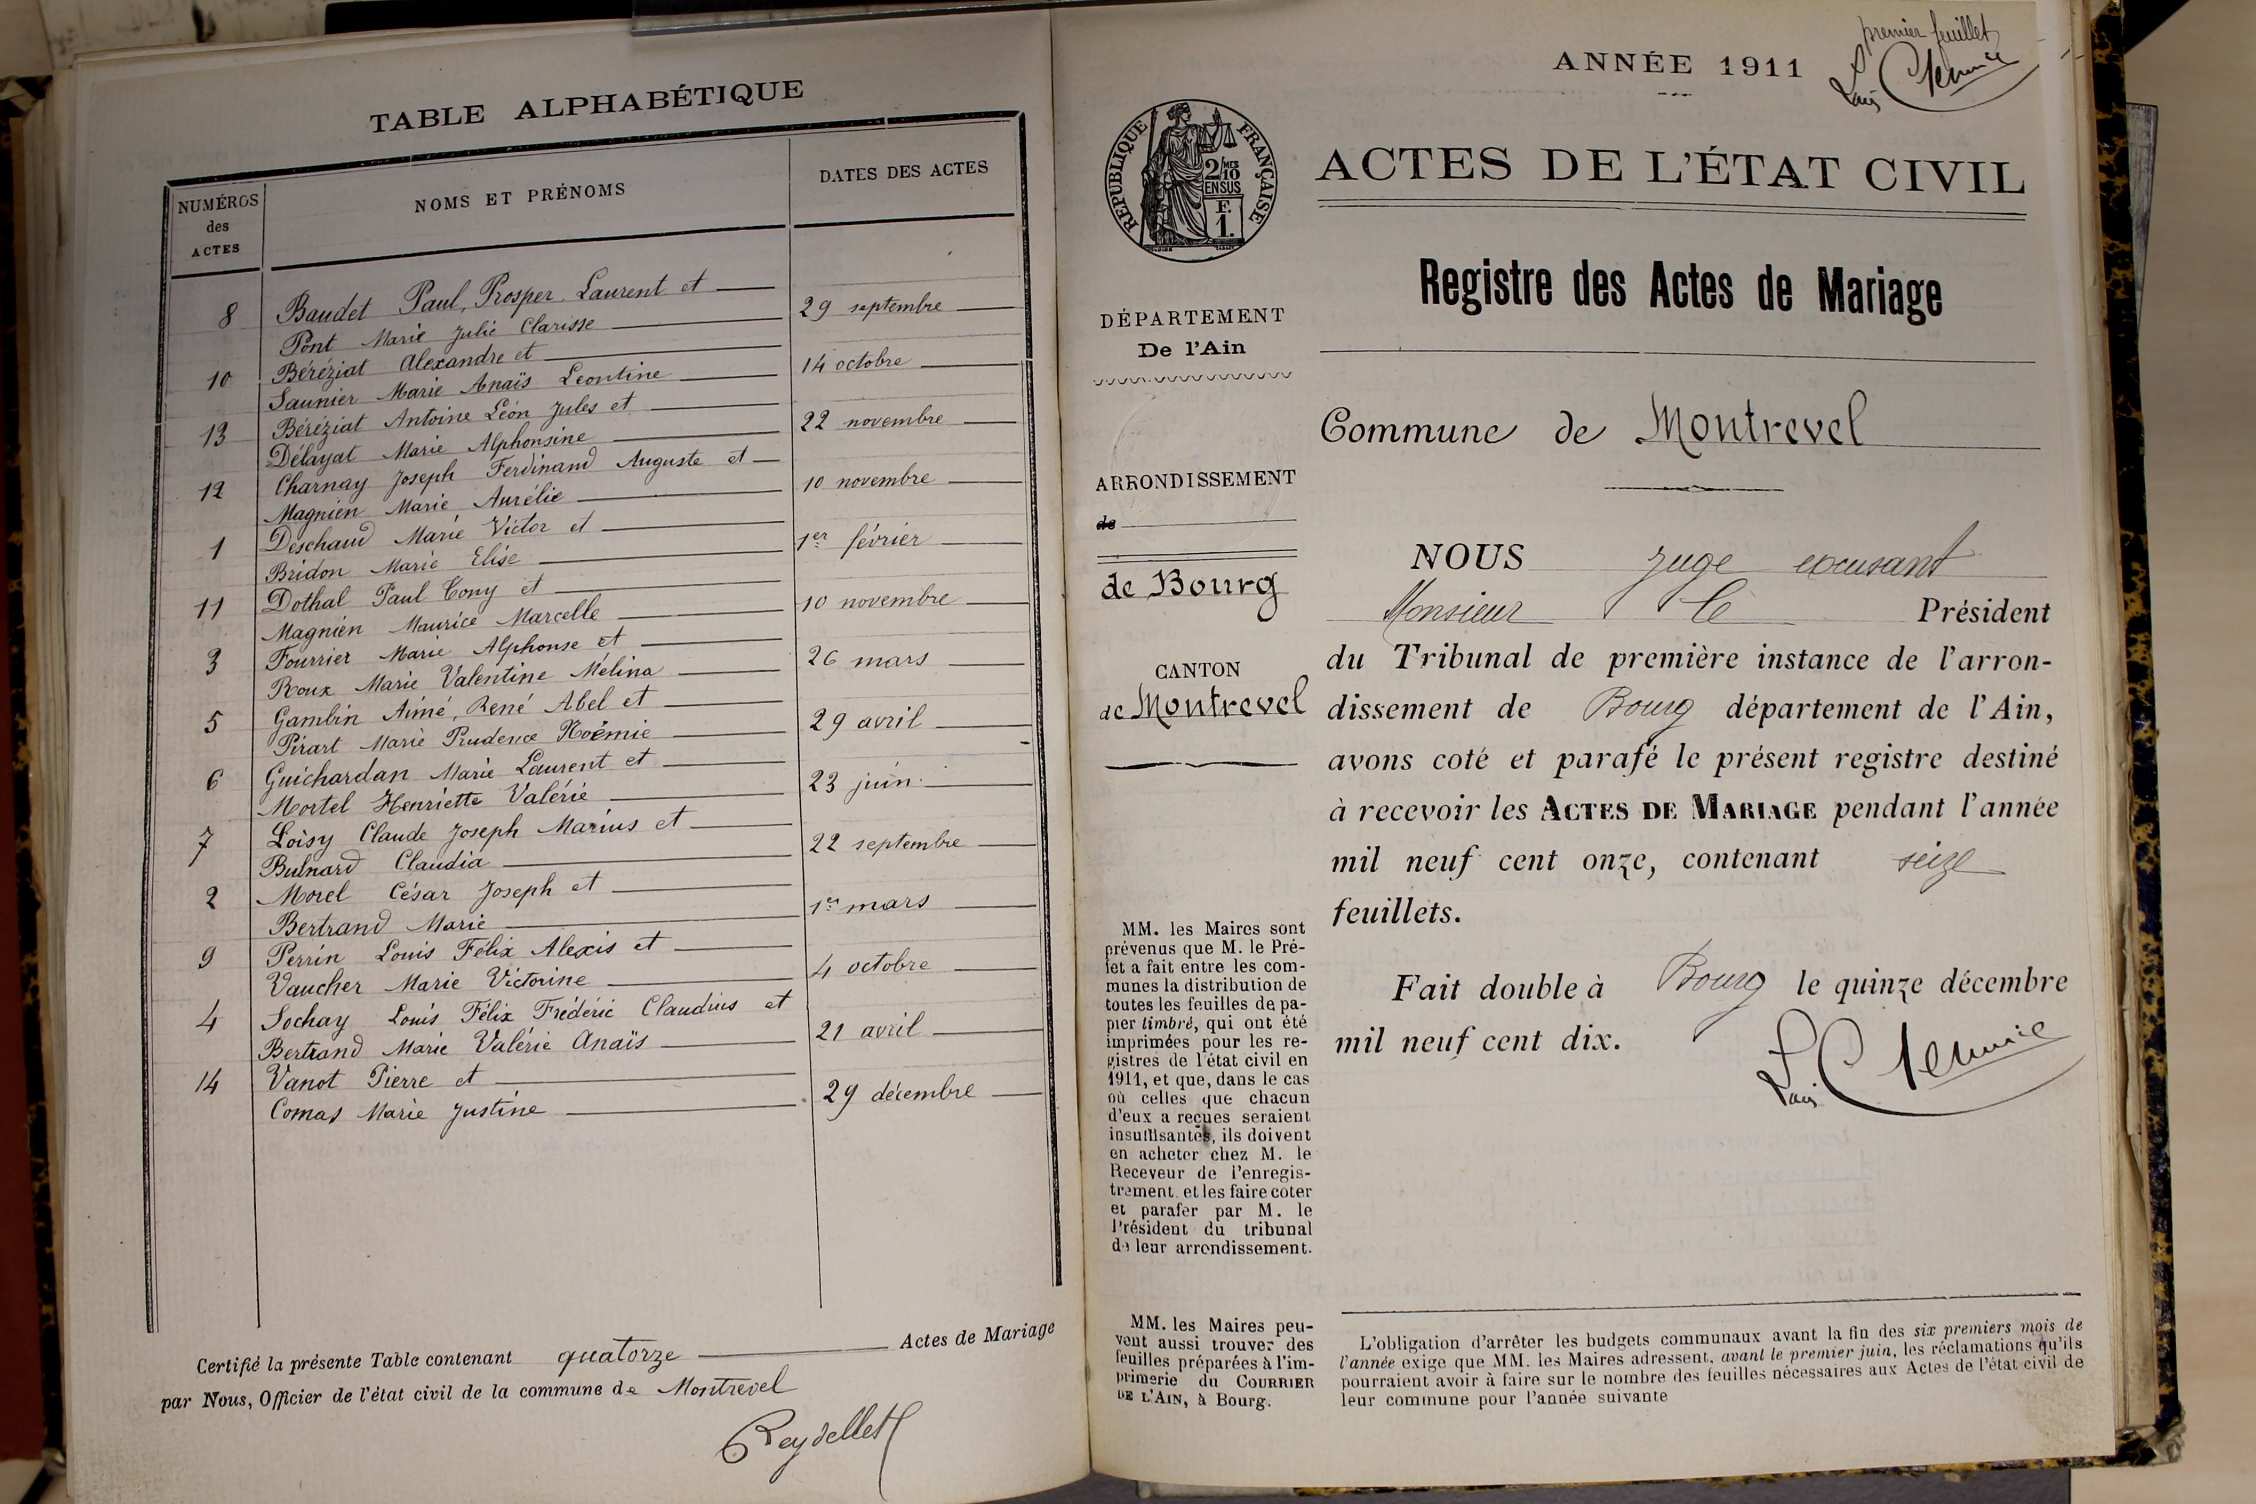 TABLE ALPHABÉTIQUE
NUMÉROS des ACTES
NOMS ET PRÉNOMS
DATES DES ACTES
8 Baudet Paul, Prosper Laurent et
Pont Marie Julie Clarisse 29 septembre
10 Béréziat Alexandre et
Saunier Marie Anaïs Léontine 14 octobre
13 Béréziat Antoine Léon Jules et
Delayat Marie Alphonsine 22 novembre
12 Charnay Joseph Ferdinand Auguste et
Magnien Marie Aurélie 10 novembre
1 Deschaud Marie Victor et
Bridon Marie Elise 1er février
11 Dothal Paul Tony et
Magnien Maurice Marcelle 10 novembre
3 Fourrier Marie Alphonse et
Roux Marie Valentine Mélina 26 mars
5 Gambin Aimé, René Abel et
Pirart Marie Prudence Noémie 29 avril
6 Guichardan Marie Laurent et
Mortel Henriette Valérie 23 juin
7 Loisy Claude Joseph Marius et
Bulnard Claudia 22 septembre
2 Morel César Joseph et
Bertrand Marie 1er mars
9 Perrin Louis Félix Alexis et
Vaucher Marie Victorine 4 octobre
4 Sochay Louis Félix Frédéric Claudius et
Bertrand Marie Valérie Anaïs 21 avril
14 Vanot Pierre et
Comas Marie Justine 29 décembre
Certifié la présente Table contenant quatorze Actes de Mariage
par Nous, Officier de l'état civil de la commune de Montrevel
Reydellet
premier feuillet
ANNÉE 1911
RÉPUBLIQUE FRANÇAISE
2/10 MES
EN SUS
F.
1.
ACTES DE L'ÉTAT CIVIL
Registre des Actes de Mariage
DÉPARTEMENT
De l'Ain
ARRONDISSEMENT
de
de Bourg
CANTON
de Montrevel
MM. les Maires sont
prévenus que M. le Pré-
fet a fait entre les com-
munes la distribution de
toutes les feuilles de pa-
pier timbré, qui ont été
imprimées pour les re-
gistres de l'état civil en
1911, et que, dans le cas
où celles que chacun
d'eux a reçues seraient
insuffisantes, ils doivent
en acheter chez M. le
Receveur de l'enregis-
trement et les faire coter
et parafer par M. le
Président du tribunal
de leur arrondissement.
MM. les Maires peu-
vent aussi trouver des
feuilles préparées à l'im-
primerie du COURRIER
DE L'AIN, à Bourg.
Commune de Montrevel
NOUS Juge excusant
Monsieur le Président
du Tribunal de première instance de l'arron-
dissement de Bourg département de l'Ain,
avons coté et parafé le présent registre destiné
à recevoir les ACTES DE MARIAGE pendant l'année
mil neuf cent onze, contenant seize
feuillets.
Fait double à Bourg le quinze décembre
mil neuf cent dix.
L'obligation d'arrêter les budgets communaux avant la fin des six premiers mois de
l'année exige que MM. les Maires adressent, avant le premier juin, les réclamations qu'ils
pourraient avoir à faire sur le nombre des feuilles nécessaires aux Actes de l'état civil de
leur commune pour l'année suivante